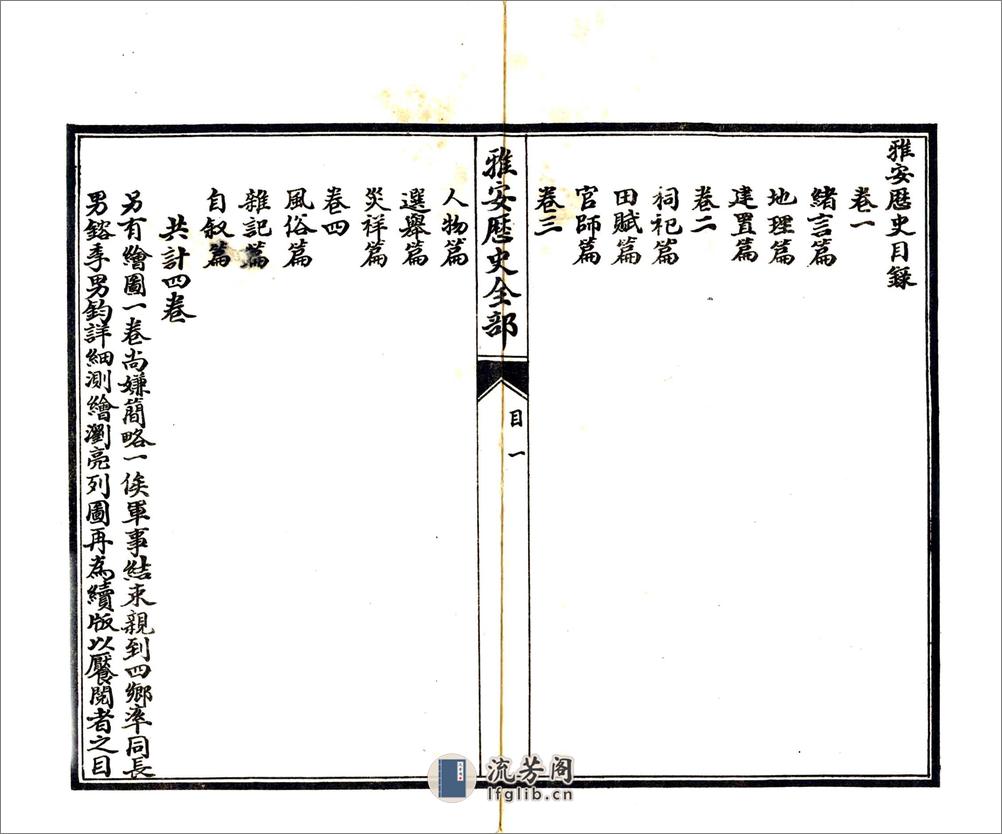 雅安歷史目録
卷一
緒言篇
地理篇
建置篇
卷二
祠祀篇
田賦篇
官師篇
卷三
雅安歷史全部
目一
人物篇
選舉篇
災祥篇
卷四
風俗篇
雜記篇
自叙篇
共計四卷
另有繪圖一卷尚嫌簡略一俟軍事結束親到四鄉率同長
男鎔季男鈞詳細測繪瀏亮列圖再為續版以饜閱者之目
流芳阁
lfglib.cn